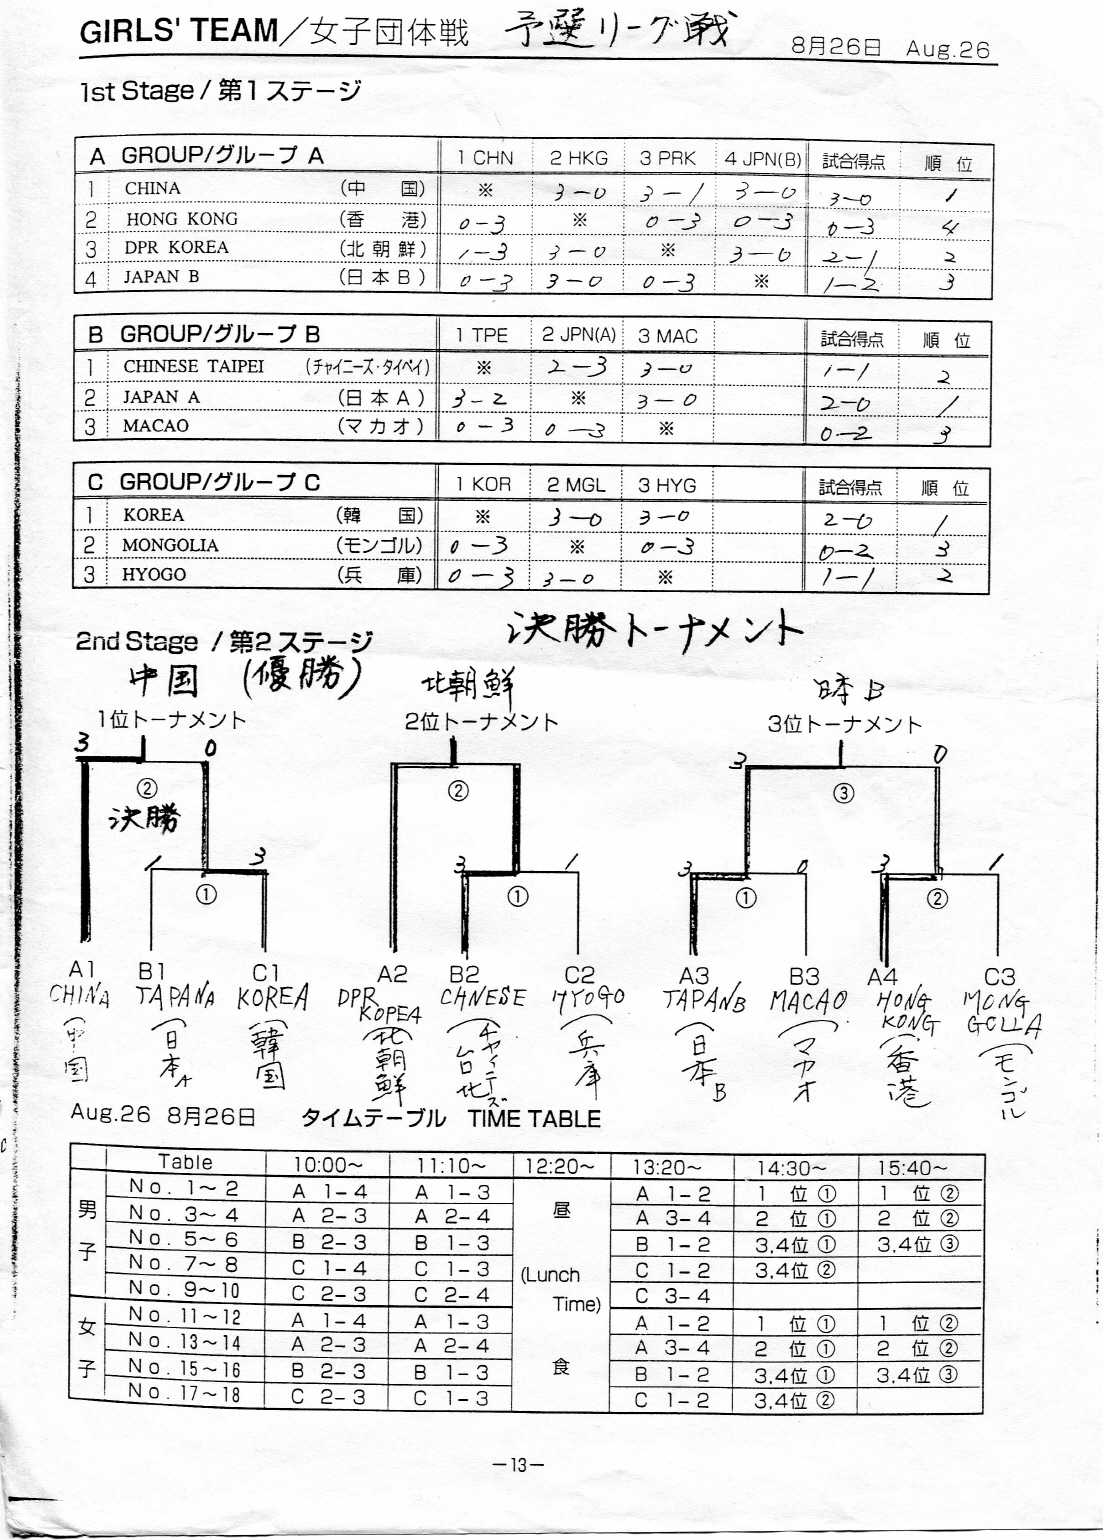 GIRLS' TEAM/女子団体戦 予選リーグ戦 8月26日 Aug.26
1st Stage / 第1ステージ
A GROUP/グループ A 1 CHN 2 HKG 3 PRK 4 JPN(B) 試合得点 順 位
1 CHINA (中 国) ※ 3-0 3-1 3-0 3-0 1
2 HONG KONG (香 港) 0-3 ※ 0-3 0-3 0-3 4
3 DPR KOREA (北朝鮮) 1-3 3-0 ※ 3-0 2-1 2
4 JAPAN B (日本B) 0-3 3-0 0-3 ※ 1-2 3
B GROUP/グループ B 1 TPE 2 JPN(A) 3 MAC 試合得点 順 位
1 CHINESE TAIPEI (チャイニーズ・タイペイ) ※ 2-3 3-0 1-1 2
2 JAPAN A (日本A) 3-2 ※ 3-0 2-0 1
3 MACAO (マカオ) 0-3 0-3 ※ 0-2 3
C GROUP/グループ C 1 KOR 2 MGL 3 HYG 試合得点 順 位
1 KOREA (韓 国) ※ 3-0 3-0 2-0 1
2 MONGOLIA (モンゴル) 0-3 ※ 0-3 0-2 3
3 HYOGO (兵 庫) 0-3 3-0 ※ 1-1 2
2nd Stage / 第2ステージ 決勝トーナメント
中国 (優勝) 北朝鮮 日本B
1位トーナメント 2位トーナメント 3位トーナメント
3 0 3 0
② ② ③
決勝
1 3 3 1 3 0 3 1
① ① ① ②
A1 B1 C1 A2 B2 C2 A3 B3 A4 C3
CHINA JAPAN A KOREA DPR KOREA CHNESE HYOGO JAPAN B MACAO HONG KONG MONG GOLIA
(中国 (日本A (韓国 (北朝鮮 (チャイニーズ台北 (兵庫 (日本B (マカオ (香港 (モンゴル
Aug.26 8月26日 タイムテーブル TIME TABLE
Table 10:00~ 11:10~ 12:20~ 13:20~ 14:30~ 15:40~
男子 No. 1~2 A 1-4 A 1-3 昼 A 1-2 1 位 ① 1 位 ②
No. 3~4 A 2-3 A 2-4 A 3-4 2 位 ① 2 位 ②
No. 5~6 B 2-3 B 1-3 B 1-2 3,4位 ① 3,4位 ③
No. 7~8 C 1-4 C 1-3 (Lunch C 1-2 3,4位 ②
No. 9~10 C 2-3 C 2-4 Time) C 3-4
女子 No. 11~12 A 1-4 A 1-3 A 1-2 1 位 ① 1 位 ②
No. 13~14 A 2-3 A 2-4 A 3-4 2 位 ① 2 位 ②
No. 15~16 B 2-3 B 1-3 食 B 1-2 3,4位 ① 3,4位 ③
No. 17~18 C 2-3 C 1-3 C 1-2 3,4位 ②
-13-